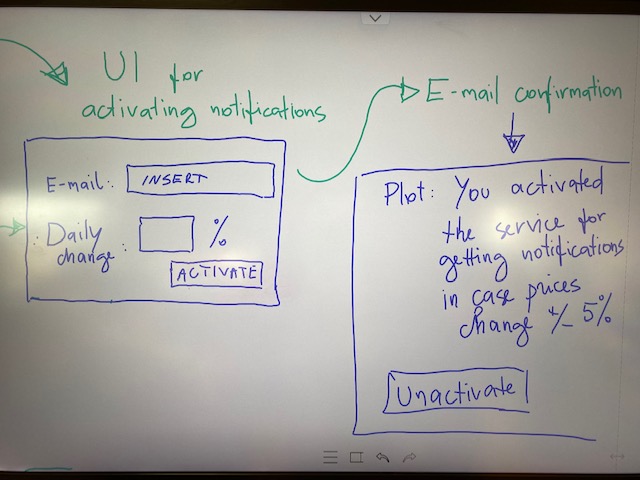 UI for
activating notifications
E-mail: INSERT
Daily
change: %
ACTIVATE
E-mail confirmation
Plot: You activated
the service for
getting notifications
in case prices
change +/- 5%
Unactivate